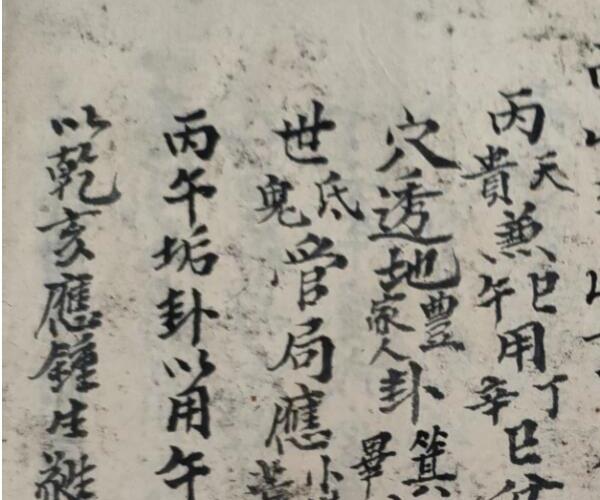 丙天貴兼巳午用丁辛巳
穴透地豐家人卦箕畢
世氐鬼管局應
丙午垢卦以用午
以乾亥應鍾生